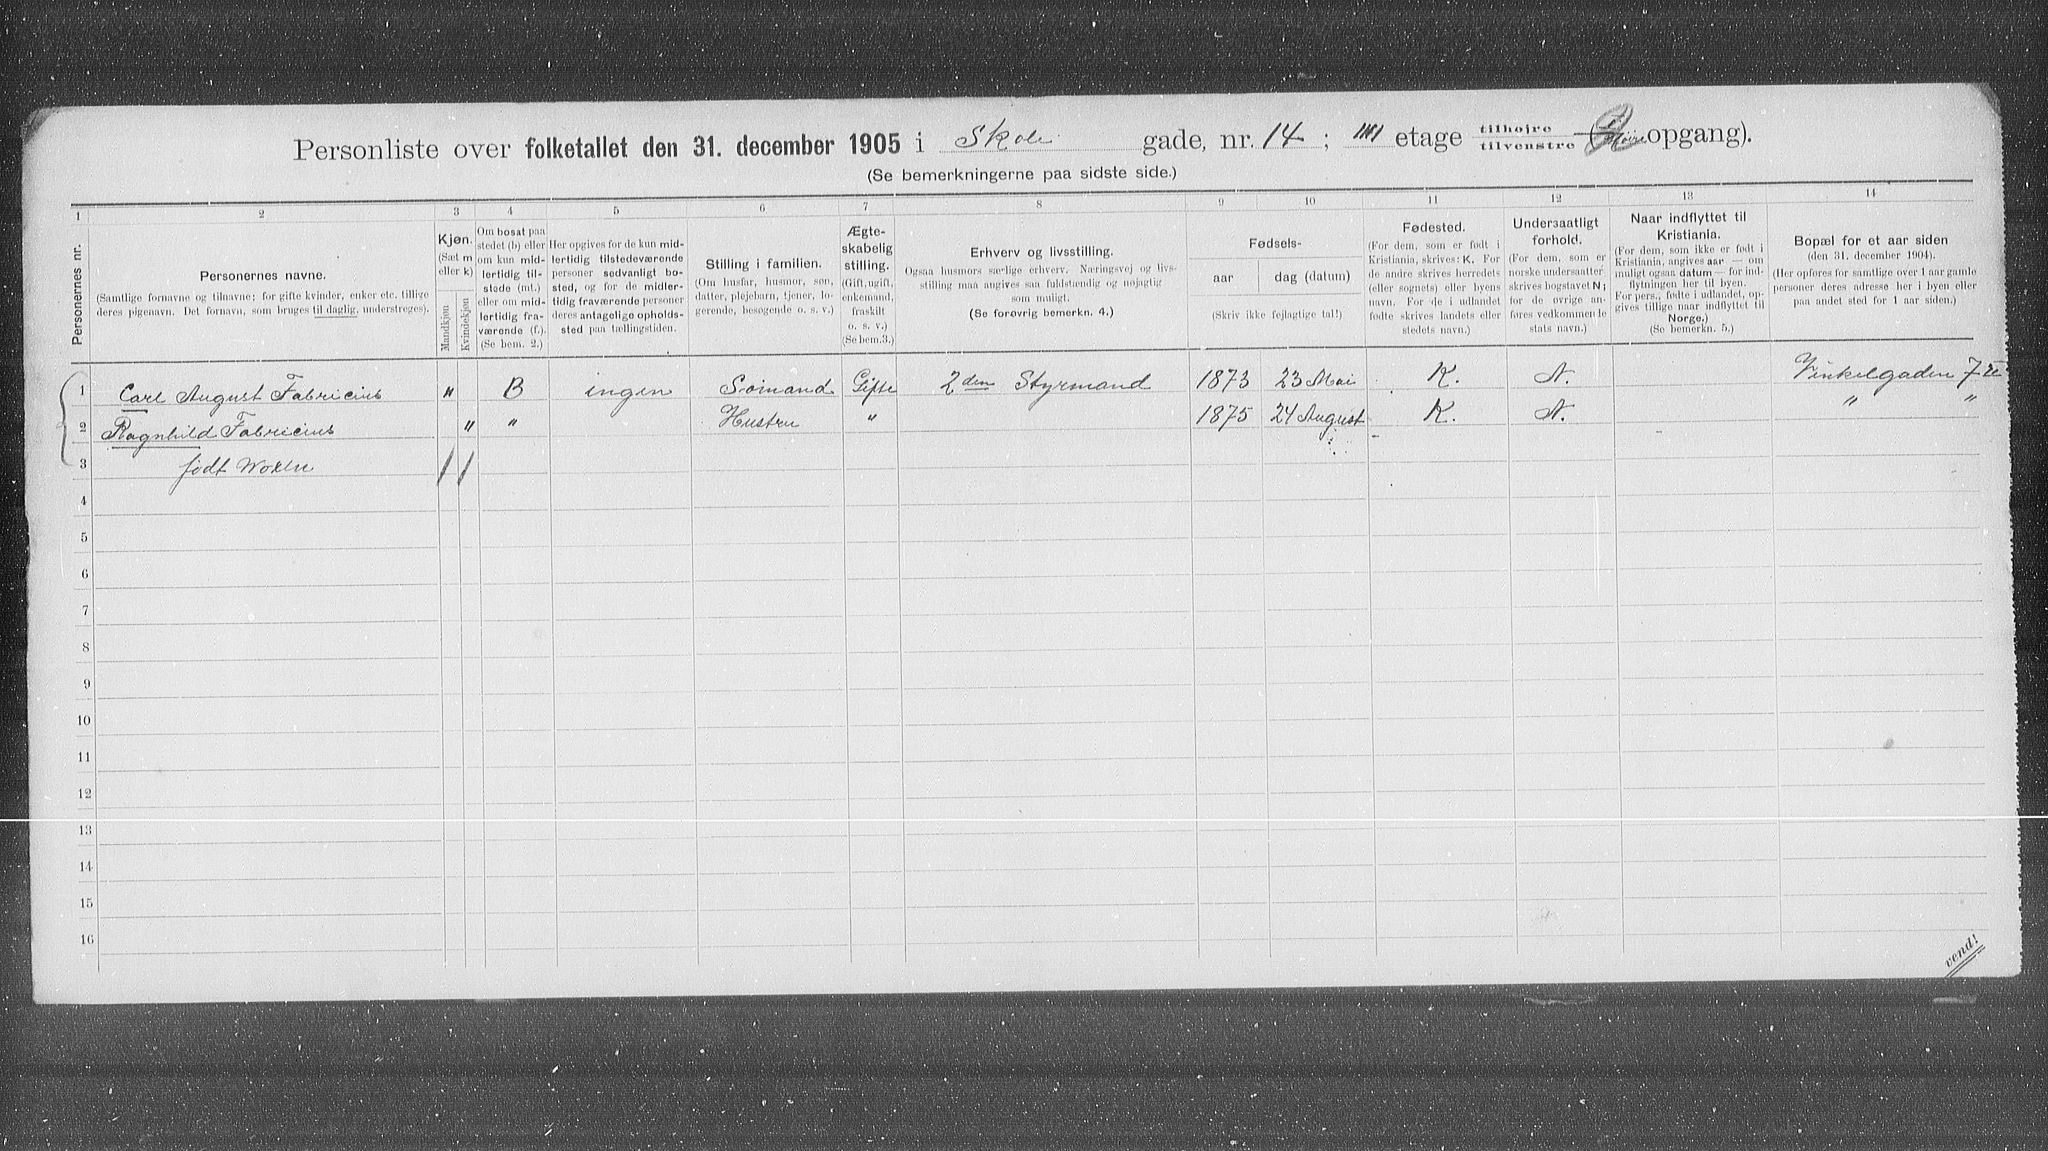 Personliste over folketallet den 31. december 1905 i Skole gade, nr. 14 ; etage tilhøjre tilvenstre opgang).
(Se bemerkningerne paa sidste side.)
1 2 3 4 5 6 7 8 9 10 11 12 13 14
Personernes nr.
Personernes navne.
(Samtlige fornavne og tilnavne; for gifte kvinder, enker etc. tillige
deres pigenavn. Det fornavn, som bruges til daglig, understreges).
Kjøn.
(Sæt m
eller k)
Mandkjøn
Kvindekjøn
Om bosat paa
stedet (b) eller
om kun mid-
lertidig til-
stede (mt.)
eller om mid-
lertidig fra-
værende (f.).
(Se bem. 2.)
Her opgives for de kun mid-
lertidig tilstedeværende
personer sedvanligt bo-
sted, og for de midler-
tidig fraværende personer
deres antagelige opholds-
sted paa tællingstiden.
Stilling i familien.
(Om husfar, husmor, søn,
datter, plejebarn, tjener, lo-
gerende, besøgende o. s. v.)
Ægte-
skabelig
stilling.
(Gift, ugift,
enkemand,
fraskilt
o. s. v.)
(Se bem.3.)
Erhverv og livsstilling.
Ogsaa husmors særlige erhverv. Næringsvej og livs-
stilling maa angives saa fuldstændig og nøjagtig
som muligt.
(Se forøvrig bemerkn. 4.)
Fødsels-
aar dag (datum)
(Skriv ikke fejlagtige tal!)
Fødested.
(For dem, som er født i
Kristiania, skrives: K. For
de andre skrives herredets
(eller sognets) eller byens
navn. For de i udlandet
fødte skrives landets eller
stedets navn.)
Undersaatligt
forhold.
(For dem, som er
norske undersaatter
skrives bogstavet N;
for de øvrige an-
føres vedkommende
stats navn.)
Naar indflyttet til
Kristiania.
(For dem, som ikke er født i
Kristiania, angives aar — om
muligt ogsaa datum — for ind-
flytningen her til byen.
For pers., fødte i udlandet, op-
gives tillige naar indflyttet til
Norge.)
(Se bemerkn. 5.)
Bopæl for et aar siden
(den 31. december 1904).
(Her opføres for samtlige over 1 aar gamle
personer deres adresse her i byen eller
paa andet sted for 1 aar siden.)
1 Carl August Fabricius " B ingen Sømand Gifte 2den Styrmand 1873 23 Mai K. N. Vinkelgaden 7
2 Ragnhild Fabricius " " Hustru " 1875 24 August K. N. " "
3 født Woxen
4
5
6
7
8
9
10
11
12
13
14
15
16
vend!